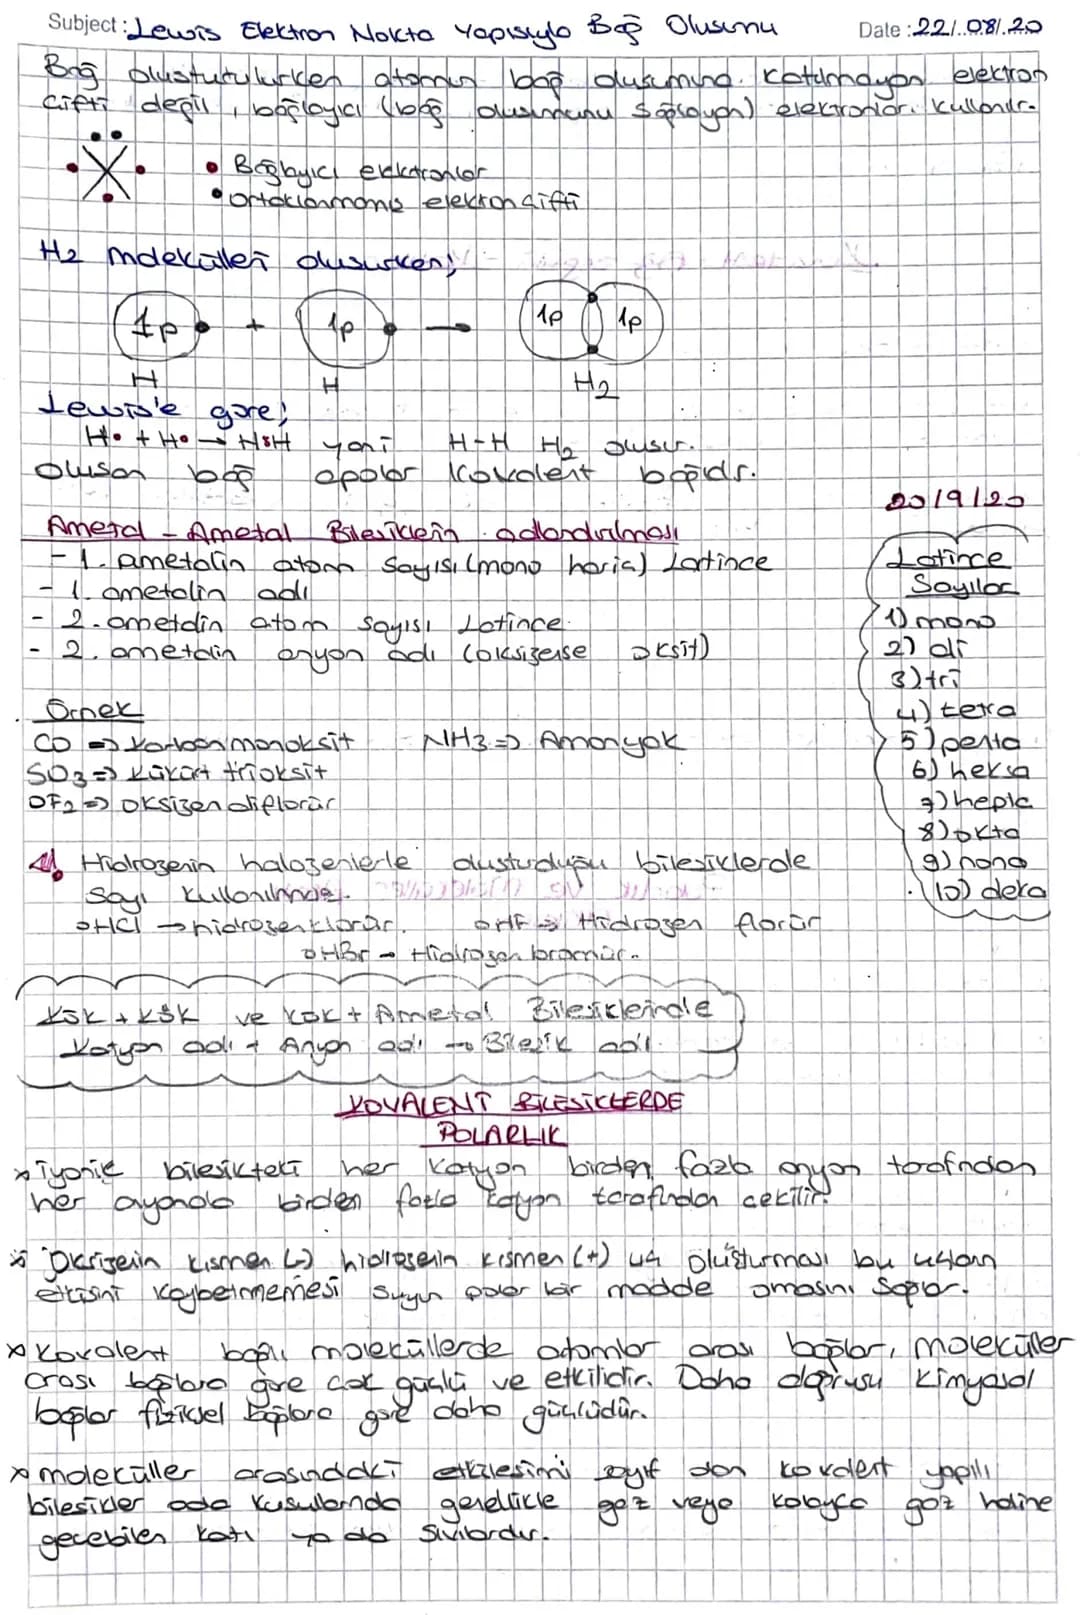 Subject: Lewis Elektron Nokta Yapısıyla Bağ Oluşumu
Date: 22/.08/.20
Bağ oluşturulurken atomun bağ oluşumuna katılmayan elektron
çifti değil, bağlayıcı (bağ oluşumunu sağlayan) elektronları kullanılır.
X
• Bağlayıcı elektronlar
• Ortaklanmamış elektron çifti
H2 molekülleri oluşurken;
1p + 1p → 1p 1p
H H H2
Lewis'e göre;
H• + H• → H:H yani H-H H2 oluşur.
Oluşan bağ apolar kovalent bağıdır.
20/9/20
Ametal - Ametal Bileşiklerin adlandırılması
- 1. ametalin atom sayısı (mono hariç) Latince
- 1. ametalin adı
- 2. ametalin atom sayısı Latince
- 2. ametalin anyon adı (oksijense oksit)
Latince
Sayılar
1) mono
2) di
3) tri
4) tetra
5) penta
6) heksa
7) hepta
8) okta
9) nona
10) deka
Örnek
CO => Karbonmonoksit NH3 => Amonyak
SO3 => Kükürt trioksit
OF2 => Oksijen diflorür
Hidrojenin halojenlerle oluşturduğu bileşiklerde
sayı kullanılmaz.
HCl → hidrojen klorür. HF → Hidrojen florür
HBr → Hidrojen bromür.
Kök + Kök ve Kök + Ametal Bileşiklerinde
Katyon adı + Anyon adı → Bileşik adı.
KOVALENT BİLEŞİKLERDE
POLARLIK
* İyonik bileşikteki her katyon birden fazla anyon tarafından
her ayonda birden fazla katyon tarafından çekilir.
* Oksijenin kısmen (-) hidrojenin kısmen (+) uç oluşturması bu uçların
etkisini kaybetmemesi suyun polar bir madde olmasını sağlar.
* Kovalent bağlı moleküllerde atomlar arası bağlar, moleküller
arası bağlara göre çok güçlü ve etkilidir. Daha doğrusu kimyasal
bağlar fiziksel bağlara göre daha güçlüdür.
* moleküller arasındaki etkileşimi zayıf olan kovalent yapılı
bileşikler oda koşullarında genellikle gaz veya kolayca gaz haline
geçebilen katı ya da sıvılardır.